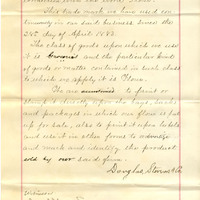 This trade mark we have used con
tinuously in our said business since the
28th day of April 1883.
The class of goods upon which we use
it is Cereals and the particular kind
of goods or matter contained in such class
to which we apply it is Flour.
We are accustomed to paint or
it directly upon the bags, sacks
and packages in which our flour is put
up for sale, also to print it upon labels
and use it in other forms to
and mark and identify the product
sold by our said firm.
Douglas, Stevens & Co.
Witnesses